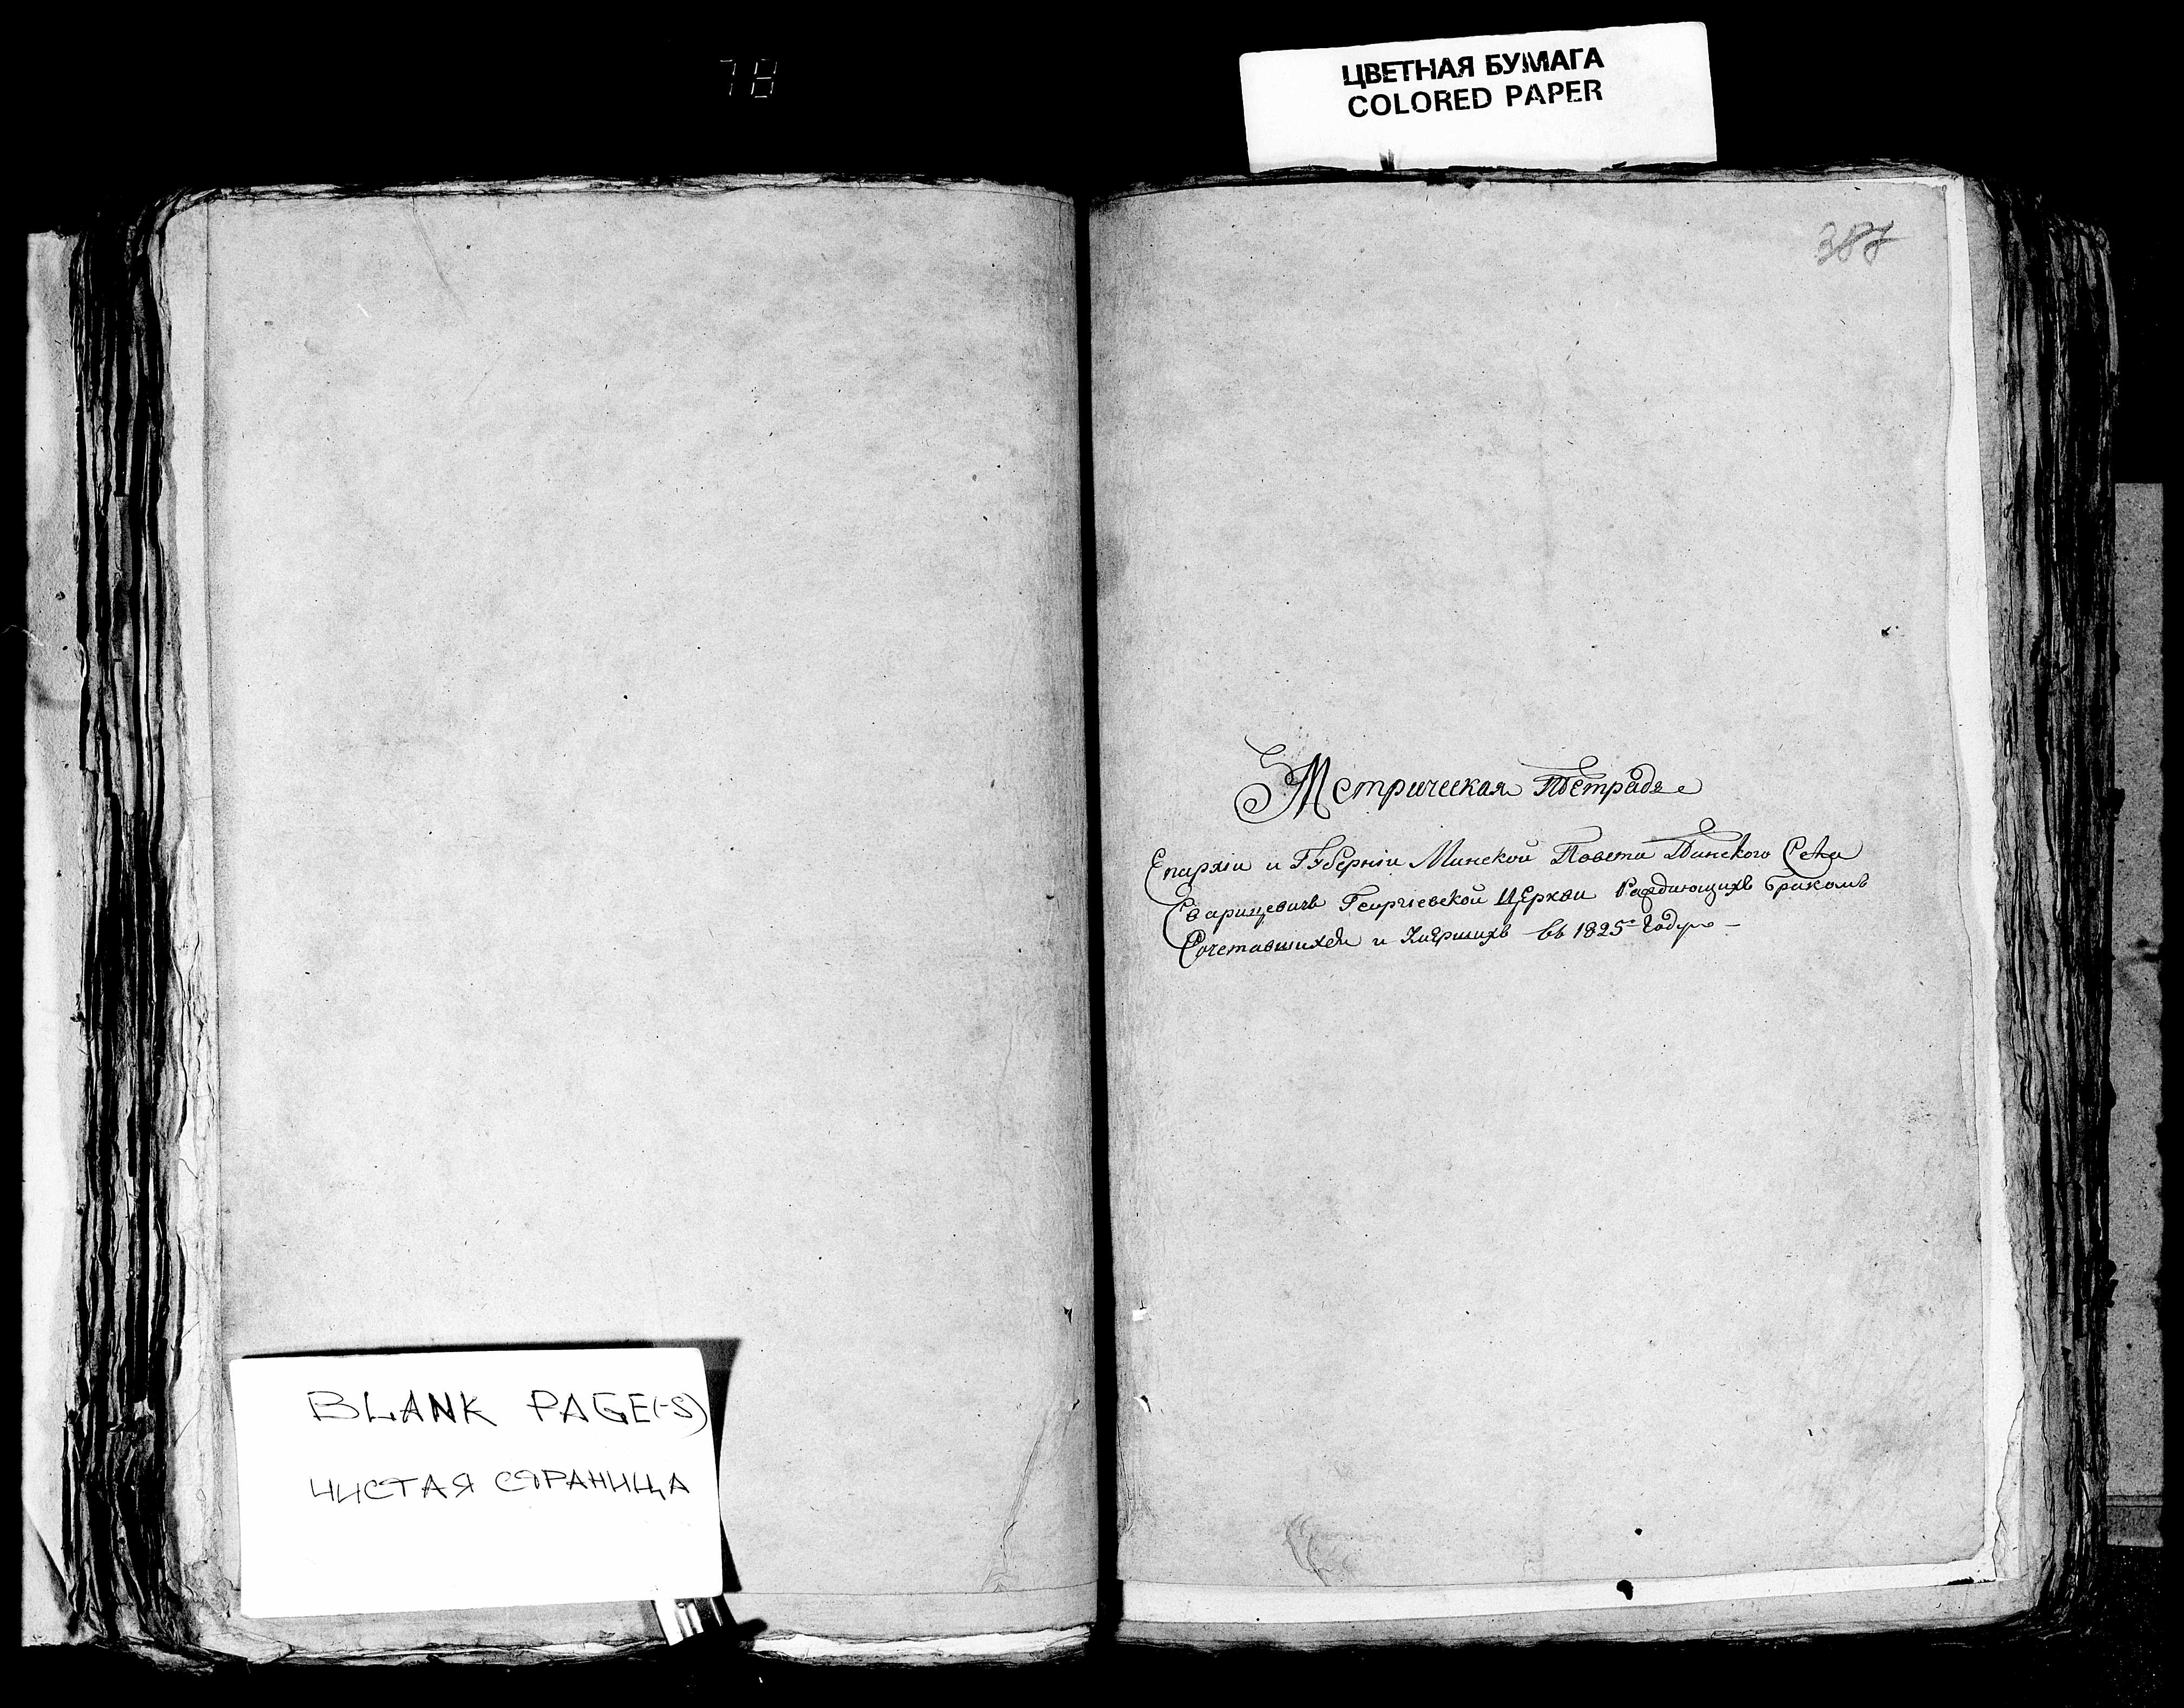 78
ЦВЕТНАЯ БУМАГА
COLORED PAPER
Метрическая Тетрадь
Епархіи и Губерніи Минской Повета Пинского Села
Сварицевичъ Георгіевской Церкви Раждающихъ браком
Сочетавшихся и Умершихъ въ 1825 Году
BLANK PAGE(-S)
ЧИСТАЯ СТРАНИЦА